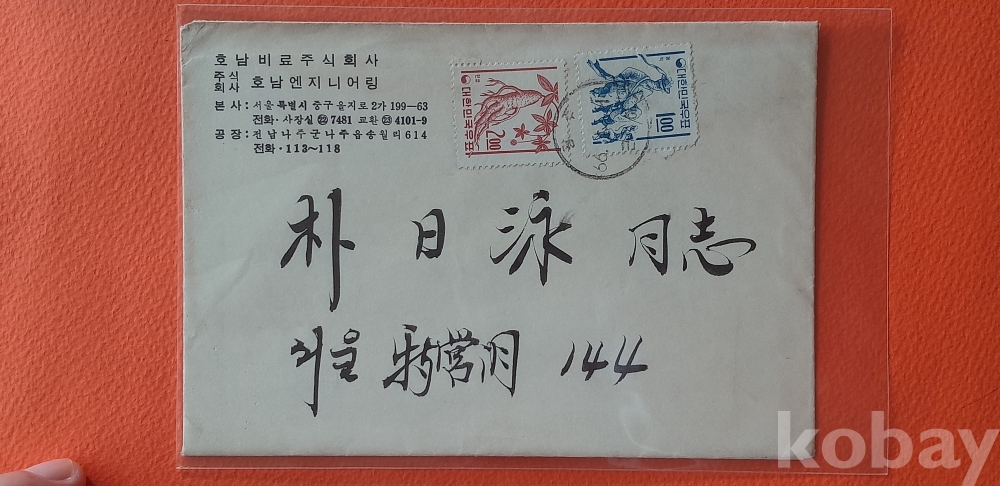 호남비료주식회사
주식회사 호남엔지니어링
본사: 서울특별시 중구 을지로 2가 199—63
전화·사장실 ㉒ 7481 교환 ㉓ 4101—9
공장: 전남나주군나주읍송월리 614
전화·113~118
인삼
대한민국우표
2.00
농악
대한민국우표
1.00
66
朴日泳 同志
서울 144
kobay